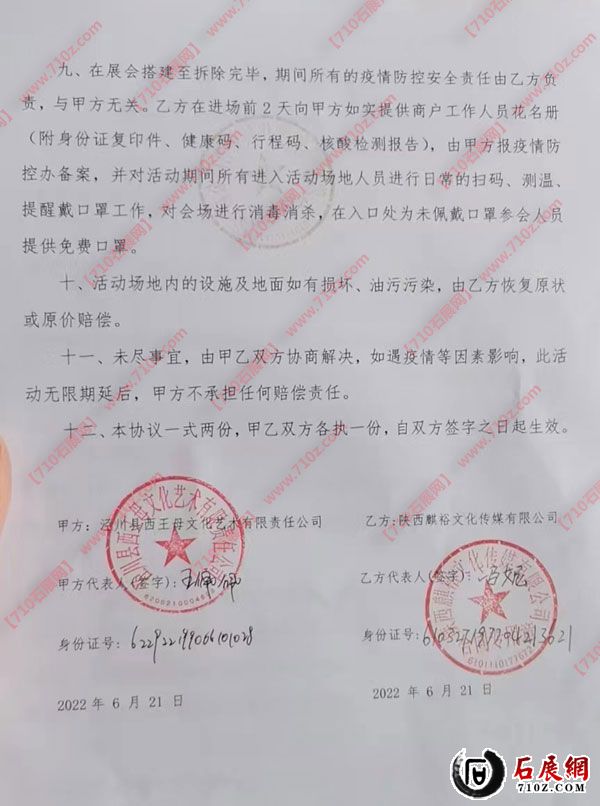 九、在展会搭建至拆除完毕，期间所有的疫情防控安全责任由乙方负
责，与甲方无关。乙方在进场前 2 天向甲方如实提供商户工作人员花名册
（附身份证复印件、健康码、行程码、核酸检测报告），由甲方报疫情防
控办备案，并对活动期间所有进入活动场地人员进行日常的扫码、测温、
提醒戴口罩工作，对会场进行消毒消杀，在入口处为未佩戴口罩参会人员
提供免费口罩。
十、活动场地内的设施及地面如有损坏、油污污染，由乙方恢复原状
或原价赔偿。
十一、未尽事宜，由甲乙双方协商解决，如遇疫情等因素影响，此活
动无限期延后，甲方不承担任何赔偿责任。
十二、本协议一式两份，甲乙双方各执一份，自双方签字之日起生效。
甲方：泾川县西王母文化艺术有限责任公司
乙方：陕西麒裕文化传媒有限公司
甲方代表人（签字）：
乙方代表人（签字）：
身份证号：
身份证号：
2022 年 6 月 21 日
2022 年 6 月 21 日
【710石展网】
www.710z.com
石展網
710Z.COM